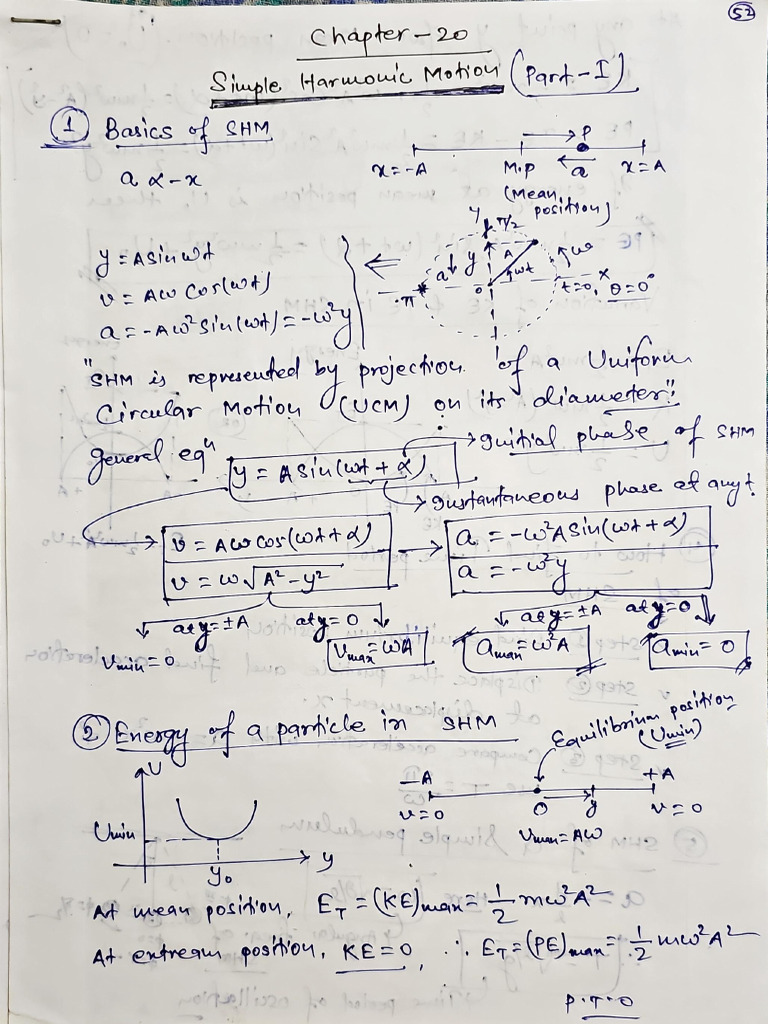 52
Chapter-20
Simple Harmonic Motion (Part-I)
① Basics of SHM
a α -x
P
x=-A M.p a x=A
(Mean position)
y π/2
y = A sin ωt
v = Aω cos(ωt)
a = -Aω² sin(ωt) = -ω²y
a y A ωt ω
π o t=0, x θ=0°
"SHM is represented by projection of a Uniform
Circular Motion (UCM) on its diameter"
general eqⁿ y = A sin(ωt + α) → Initial phase of SHM
→ Instantaneous phase at any t.
v = Aω cos(ωt + α) → a = -ω²A sin(ωt + α)
v = ω√A² - y² a = -ω²y
at y=±A at y=0 at y=±A at y=0
Vmin = 0 Vmax = ωA amax = ω²A amin = 0
② Energy of a particle in SHM
Equilibrium position
(Umin)
U
-A +A
v=0 O y v=0
Umin Vmax = Aω
y
y₀
At mean position, E_T = (KE)max = 1/2 mω²A²
At extream position, KE = 0, ∴ E_T = (PE)max = 1/2 mω²A²
P.T.O